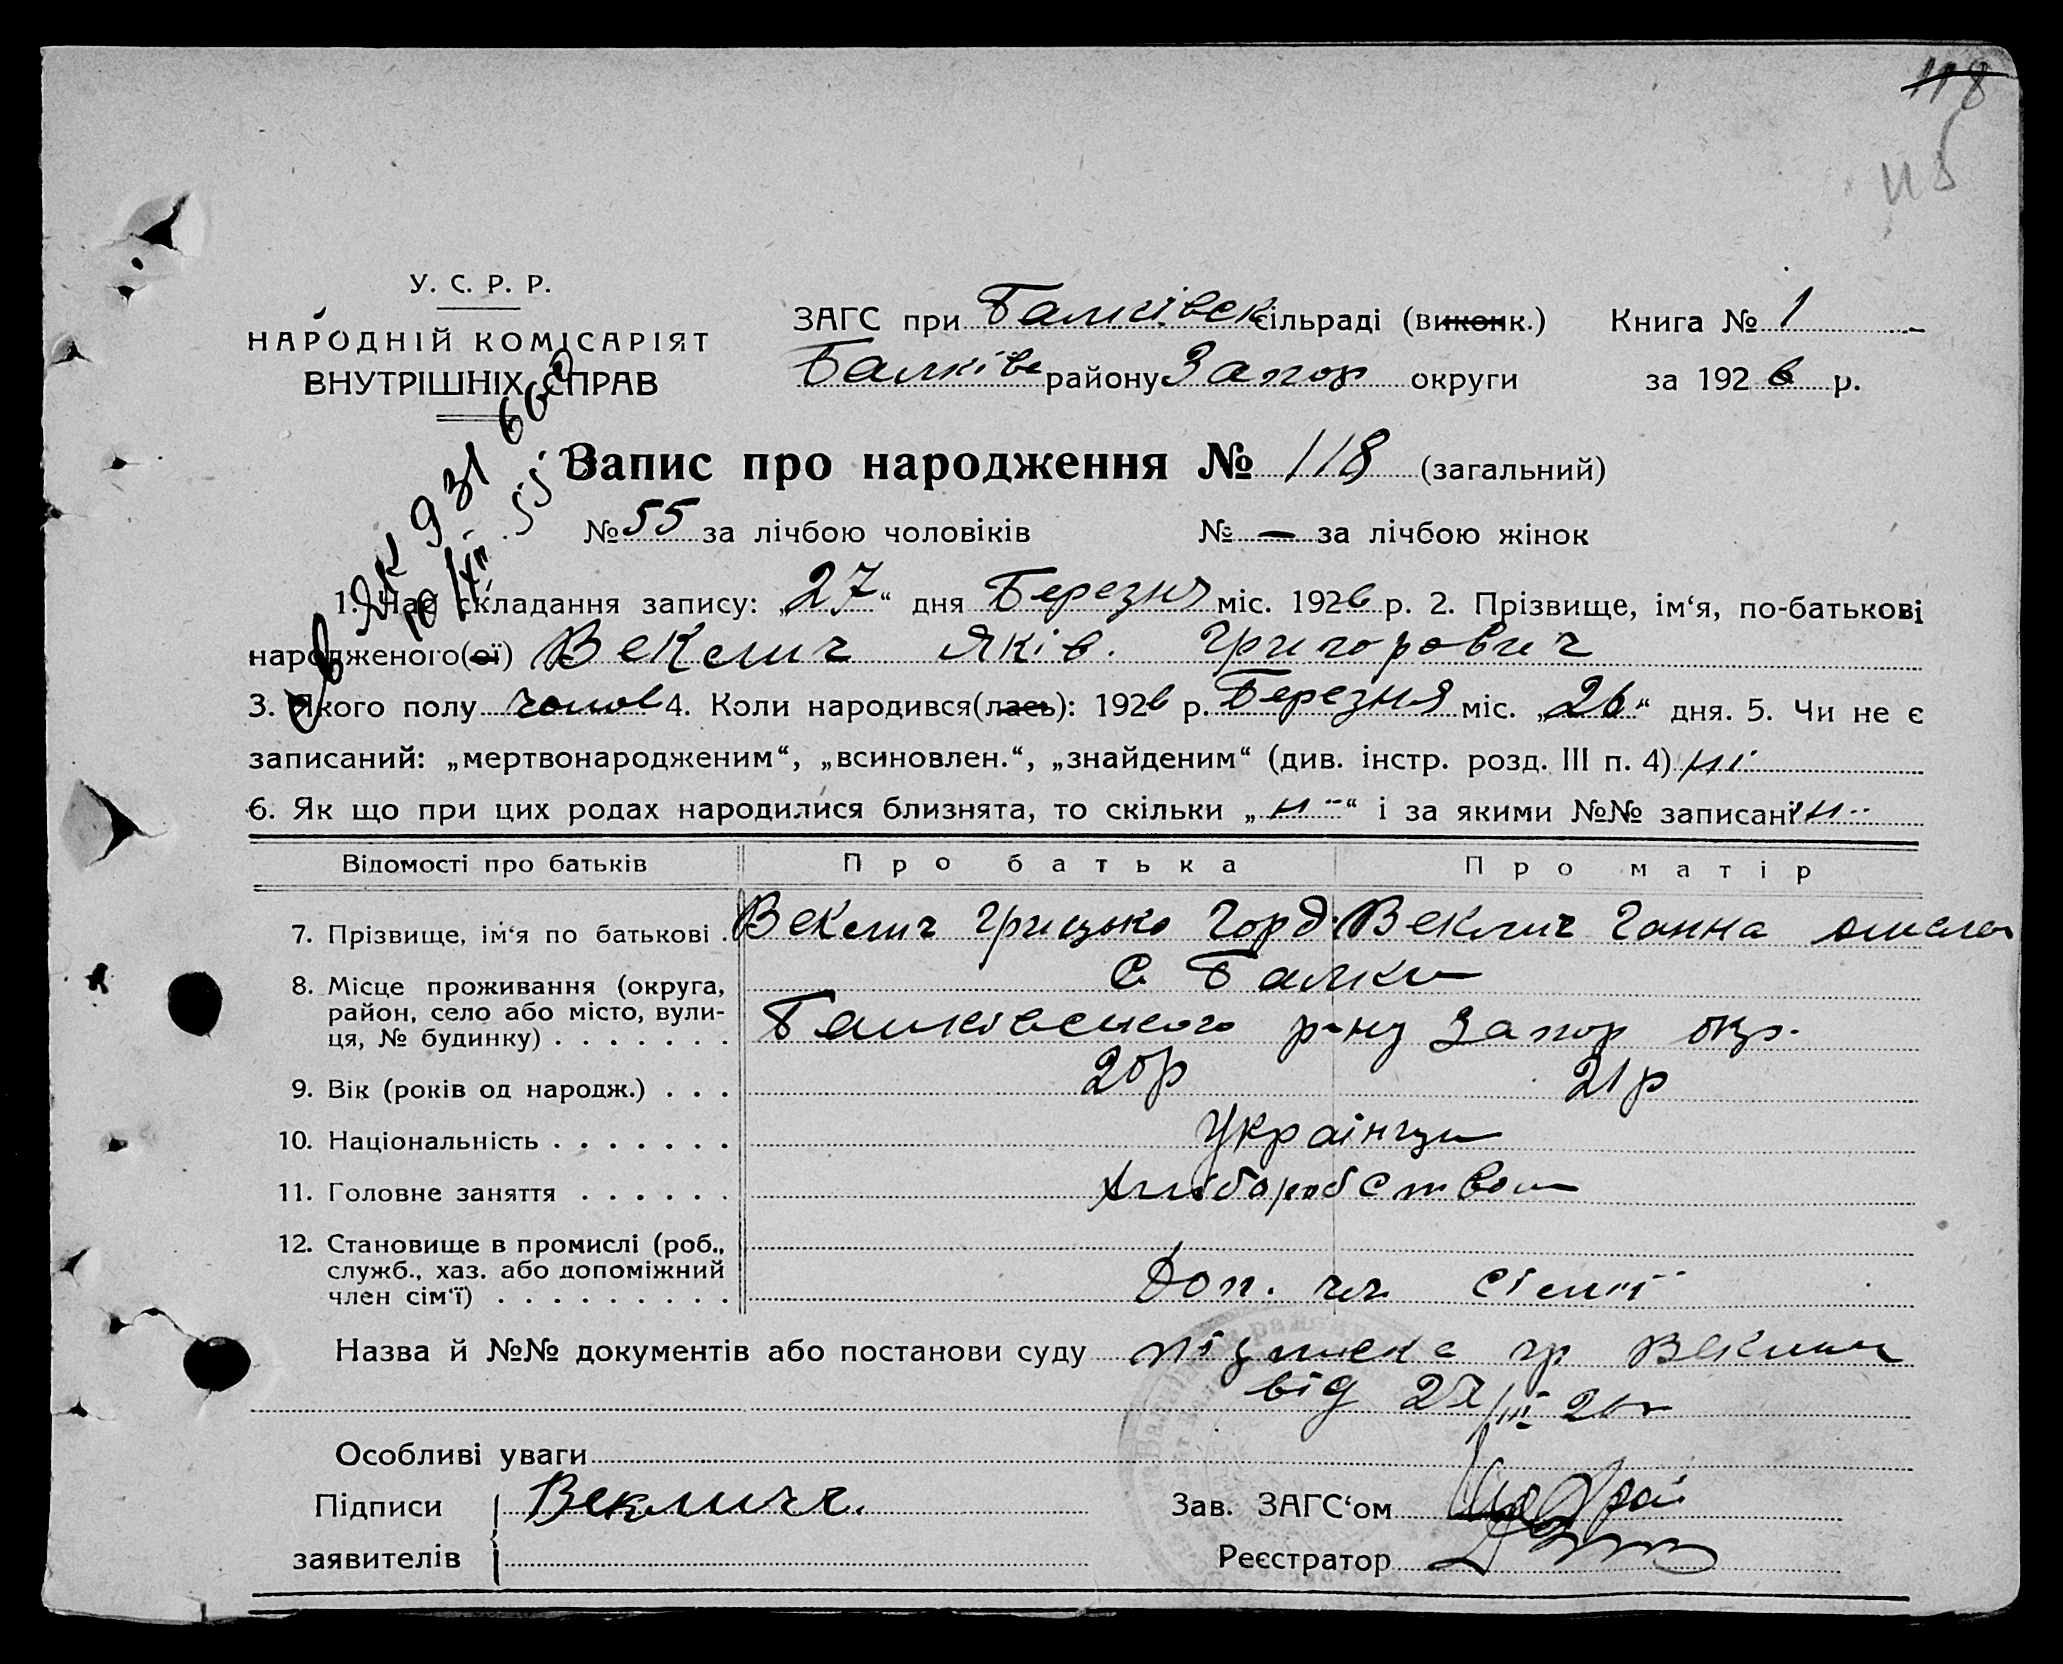 118
118
У. С. Р. Р.
НАРОДНІЙ КОМІСАРІЯТ
ВНУТРІШНІХ СПРАВ
ЗАГС при Балківск сільраді (виконк.) Книга № 1
Балківс району Запор округи за 1926 р.
Запис про народження № 118 (загальний)
№ 55 за лічбою чоловіків № — за лічбою жінок
1. Час складання запису: „27“ дня Березня міс. 1926 р. 2. Прізвище, ім‘я, по-батькові
народженого(ої) Веклич Яків. Григорович
3. Якого полу чолов 4. Коли народився(лась): 1926 р. Березня міс. „26“ дня. 5. Чи не є
записаний: „мертвонародженим“, „всиновлен.“, „знайденим“ (див. інстр. розд. III п. 4) ні
6. Як що при цих родах народилися близнята, то скільки „н-“ і за якими №№ записані н-
Відомості про батьків Про батька Про матір
7. Прізвище, ім‘я по батькові . Веклич Грицько Горд. Веклич Ганна
8. Місце проживання (округа, с Балки
район, село або місто, вули-
ця, № будинку) . . . . . . . Балківського р-ну Запор окр.
9. Вік (років од народж.) . . . 20р 21р
10. Національність . . . . . . . Українци
11. Головне заняття . . . . . . Хліборобством
12. Становище в промислі (роб.,
служб., хаз. або допоміжний
член сім‘ї) . . . . . . . . . Доп. чл. сімї
Назва й №№ документів або постанови суду підписка гр Веклич
від 27/III 26г
Особливі уваги
Підписи Веклич Зав. ЗАГС‘ом
заявителів Реєстратор